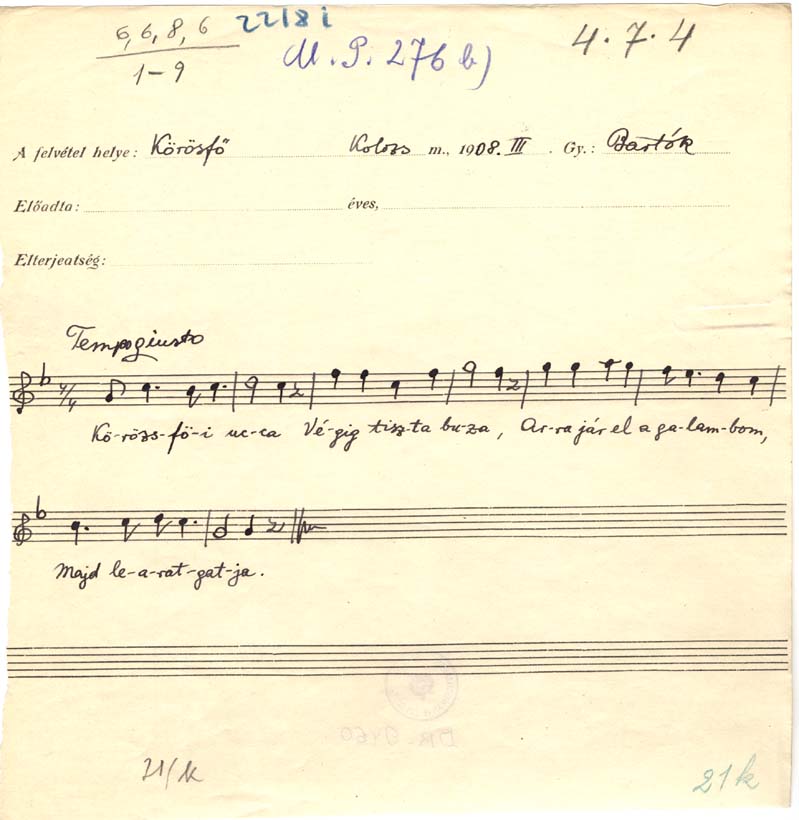 6, 6, 8, 6
1-9
22/8 i
M. P. 276 b)
4.7.4
A felvétel helye: Körösfő Kolozs m., 1908. III. Gy.: Bartók
Előadta: éves,
Elterjedtség:
Tempo giusto
4/4
Kö-rözs-fő-i uc-ca Vé-gig tisz-ta bu-za, Ar-ra jár el a ga-lam-bom,
Majd le-a-rat-gat-ja.
21/k
21k